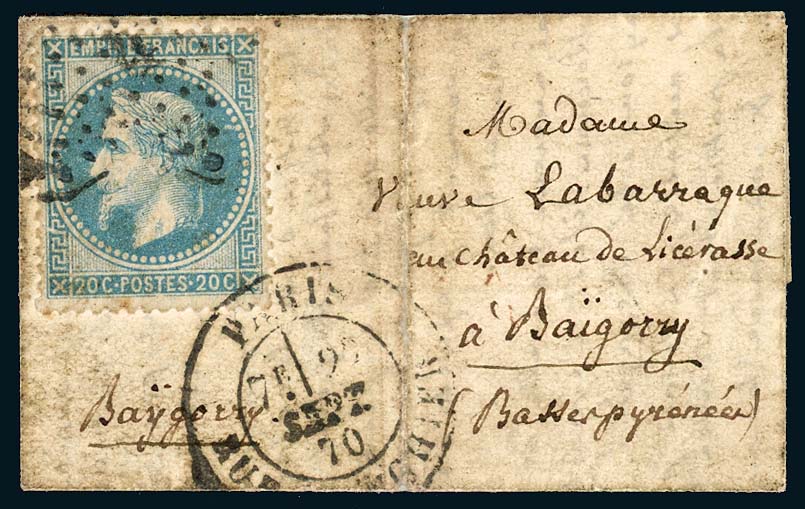 EMPIRE FRANCAIS
20 C·POSTES·20 C
Madame
Veuve Labarraque
au château de Licérasse
à Baïgorry
(Basses pyrénées)
Baÿgorry
PARIS
7E
SEPT.
70